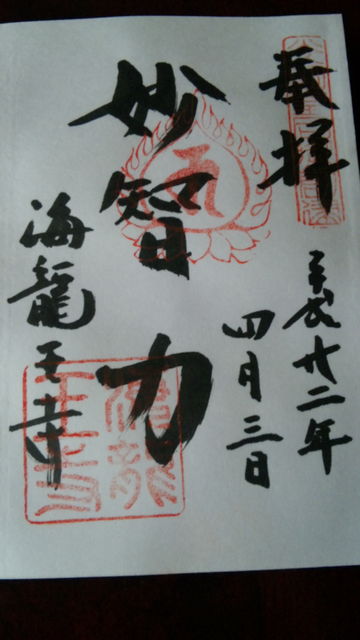 奉拝
平成廿二年
四月三日
妙智力
海龍王寺
海龍
王寺